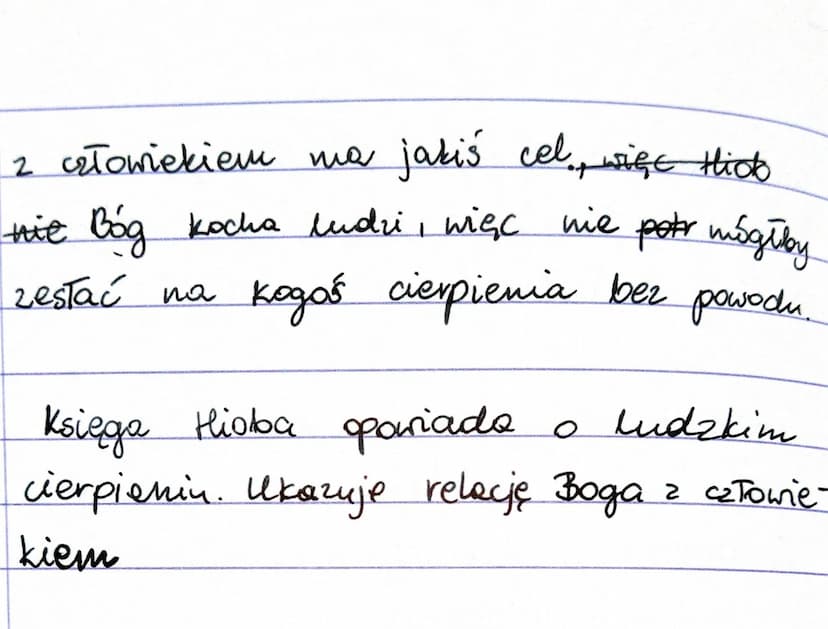 z człowiekiem ma jakiś cel., więc Hiob
nie Bóg kocha ludzi, więc nie potr mógłby
zesłać na kogoś cierpienia bez powodu.
Księga Hioba opowiada o ludzkim
cierpieniu. Ukazuje relację Boga z człowie-
kiem